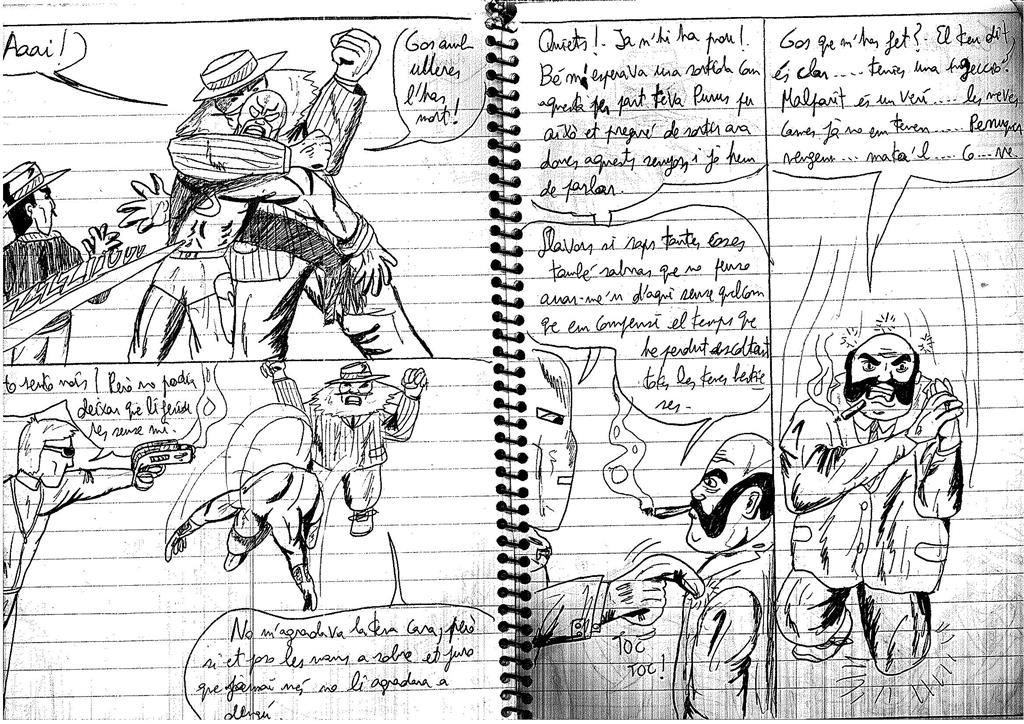 Aaai!
Gos amb
ulleres
l'has
mort!
to sento nois! Però no podia
deixar que li fessis
res sense mi.
No m'agradava la teva cara, però
si et poso les mans a sobre et juro
que mai més no li agradara a
dengú.
Quiets! Ja n'hi ha prou!
Bé m'esperava una sortida com
aquesta per part teva Punus per
això et pregaré de sortir ara
doncs aquests senyors i jo hem
de parlar.
Llavors si saps tantes coses
també sabras que no penso
anar-me'n d'aqui sense quelcom
que em compensi el temps que
he perdut escoltant
totes les teves bestie
ses.
TOC
TOC!
Gos que m'has fet? El teu dit,
és clar.... tenies una
Malparit és un verí.... les meves
cames ja no em tenen....
vengeu... mata'l... G...ve